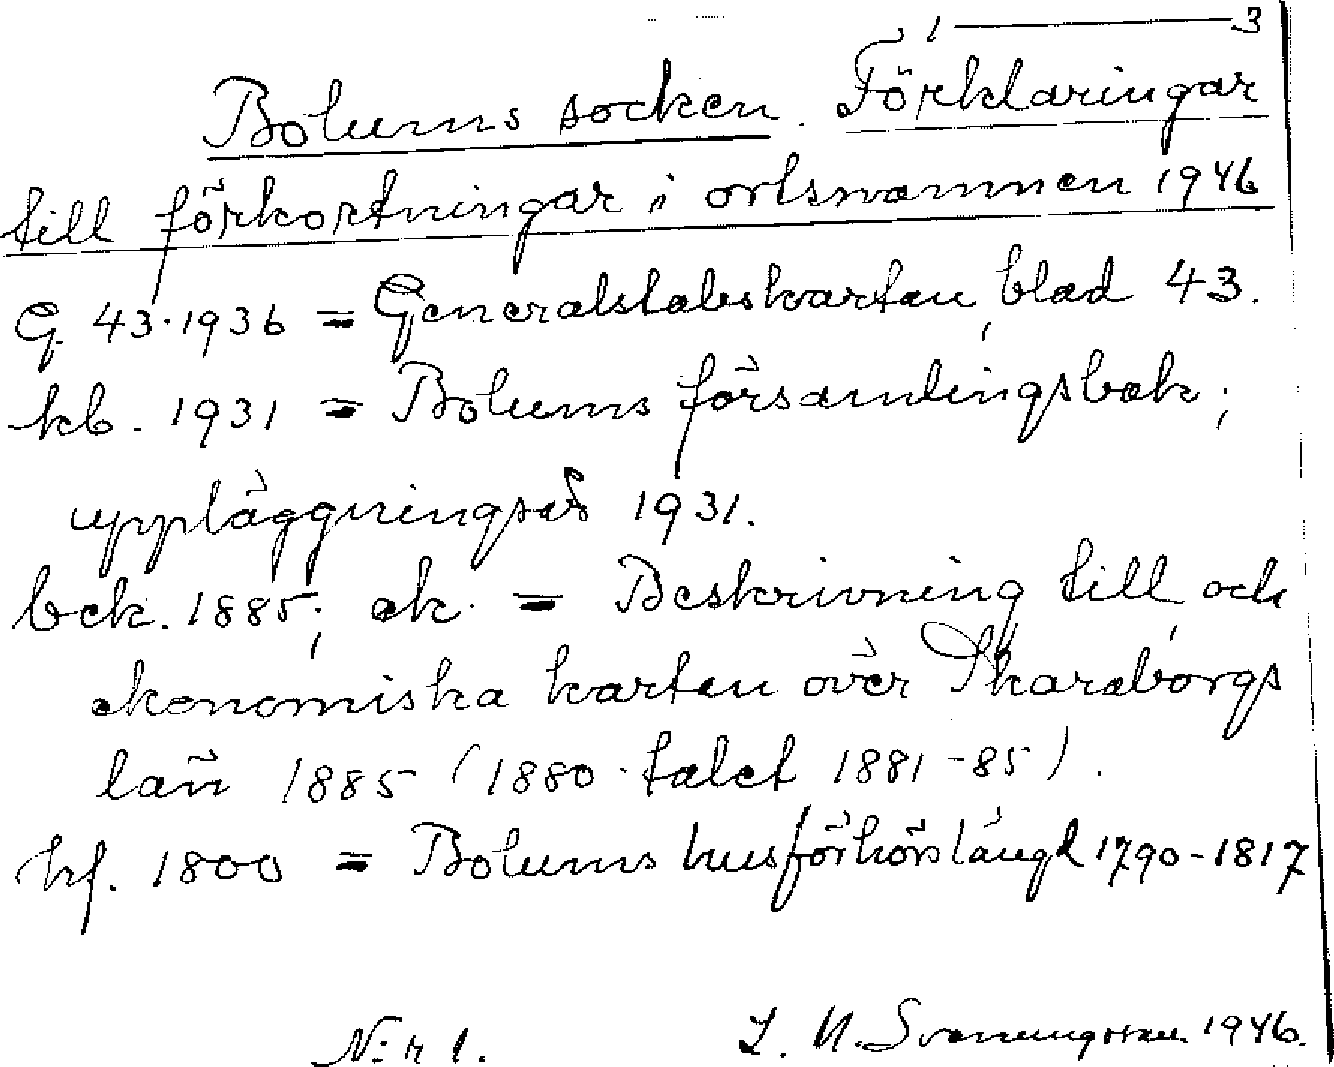 1 — 3
Bolums socken. Förklaringar
till förkortningar i ortsnamnen 1946
G. 43.1936 = Generalstabskartan, blad 43.
kb. 1931 = Bolums församlingsbok;
uppläggningsår 1931.
bek. 1885; ek. = Beskrivning till och
ekonomiska kartan över Skaraborgs
län 1885 (1880-talet 1881-85).
hf. 1800 = Bolums husförhörslängd 1790-1817
N:r 1. L. N. Svanungsson 1946.